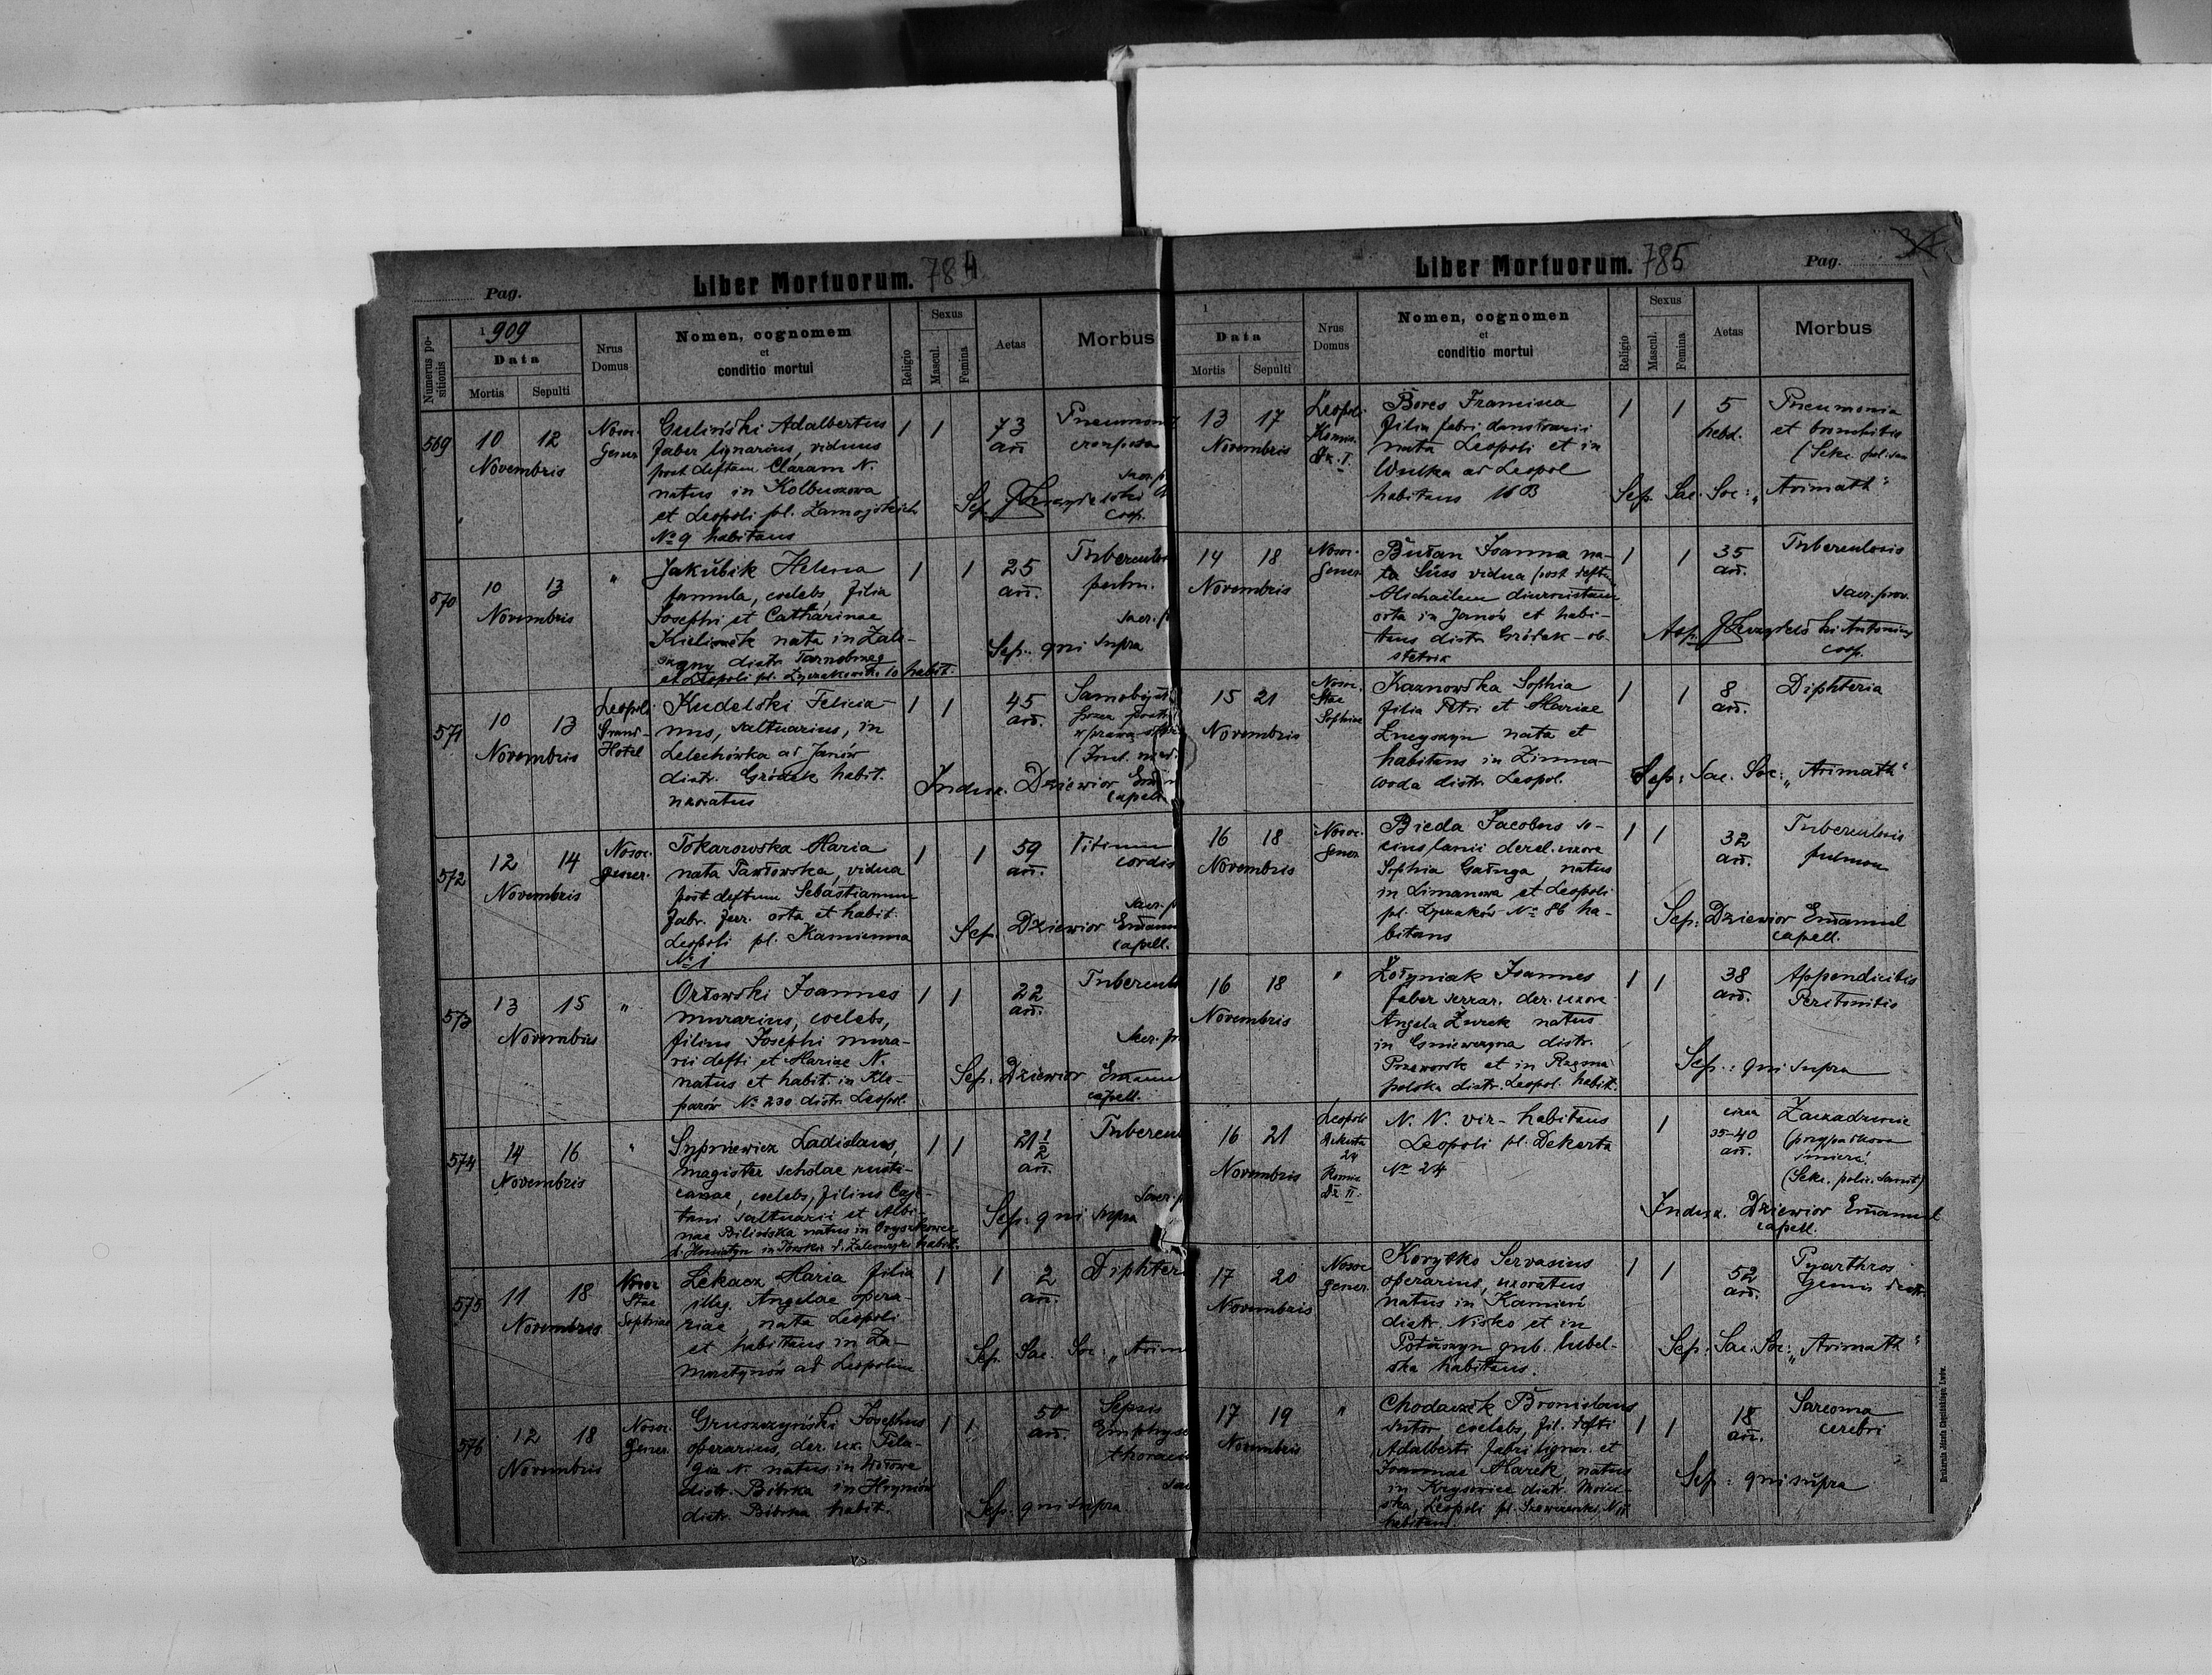 Pag.
Liber Mortuorum. 784
Numerus positionis
1909
Data
Mortis
Sepulti
Nrus Domus
Nomen, cognomen
et
conditio mortui
Religio
Sexus
Mascul.
Femina
Aetas
Morbus
569
10 12
Novembris
Nosoc.
gener.
Guliński Adalbertus
faber lignarius, viduus
post deftam Claram N.
natus in Kolbuszowa
et Leopoli pl. Zamojskich
No 9 habitans
1 1
73
an̄
Sep.
coop.
570
10 13
Novembris
"
Jakubik Helena
famula, coelebs, filia
Josephi et Catharinae
nata in
distr. Tarnobrzeg
et Leopoli pl. Łyczakowska 10 habit.
1 1
25
an̄.
pulm.
Sep. qui supra
571
10 13
Novembris
Leopoli
Grand-
Hotel
Kudelski Felicia-
nus, saltuarius, in
Lelechówka ad Janów
distr. Gródek habit.
uxoratus
1 1
45
an̄.
Indux. Dziewior
capell.
572
12 14
Novembris
Nosoc.
gener.
Tokarowska Maria
nata Pawłowska, vidua
post deftum Sebastianum
fabr. ferr. orta et habit.
Leopoli pl. Kamienna
No 1
1 1
59
an̄.
Vitium
cordis
Sep. Dziewior
capell.
573
13 15
Novembris
"
Orłowski Joannes
murarius, coelebs,
filius Josephi mura-
rii defti et Mariae N.
natus et habit. in Kle-
parów No 230 distr. Leopol.
1 1
22
an̄.
Sep. Dziewior
capell.
574
14 16
Novembris
"
Sypniewicz Ladislaus,
magister scholae rusti-
canae, coelebs, filius Caje-
tani saltuarii et Albi-
nae Bilińska natus in
habit.
1 1
21 1/2
an̄.
Sep. qui supra
575
11 18
Novembris
Nosoc
Stae
Sophiae
Lekacz Maria filia
illeg. Angelae opera-
riae, nata Leopoli
et habitans in Za-
marstynów ad Leopolim
1 1
2
an̄.
Sep. Sac. Soc: "
576
12 18
Novembris
Nosoc.
gener.
Gruszczyński Josephus
operarius, der. ux. Pela-
gia N. natus in
distr. Bóbrka in Hryniów
distr. Bóbrka habit.
1 1
50
an̄.
Sepsis
Sep. qui supra
Liber Mortuorum. 785
Pag.
1
Data
Mortis
Sepulti
Nrus
Domus
Nomen, cognomen
et
conditio mortui
Religio
Sexus
Mascul.
Femina
Aetas
Morbus
13 17
Novembris
Leopoli
Komis.
Dz. I.
Bores Francisca
filia fabri
nata Leopoli et in
Wulka ad Leopol
habitans 16 B
1 1
5
hebd.
Pneumonia
et bronchitis
Sep. Sac. Soc: "Arimath"
14 18
Novembris
Nosoc.
gener.
Bułan Joanna na-
ta Süss vidua post deftum
Michaelem diurnistam
orta in Janów et habi-
tans distr. Gródek - ob-
stetrix
1 1
35
an̄.
Tuberculosis
sacr. prov.
coop.
15 21
Novembris
Nosoc.
Stae
Sophiae
Kaznowska Sophia
filia Petri et Mariae
nata et
habitans in Zimna-
woda distr. Leopol.
1 1
8
an̄.
Diphteria
Sep: Sac. Soc: "Arimath"
16 18
Novembris
Nosoc.
gener.
Bieda Jacobus so-
cius lanii derel. uxore
Sophia natus
in Limanowa et Leopoli
pl. Łyczaków No 86 ha-
bitans
1 1
32
an̄.
Tuberculosis
pulmon
Sep: Dziewior Emanuel
capell.
16 18
Novembris
"
Żołyniak Joannes
faber serrar. der. uxore
Angela Żurek natus
in Gniewczyna distr.
Przeworsk et in Rzęsna
polska distr. Leopol. habit.
1 1
38
an̄.
Appendicitis
Peritonitis
Sep.: qui supra
16 21
Novembris
Leopoli
Dekerta
24
Komis.
Dz II.
N. N. vir - habitans
Leopoli pl. Dekerta
No 24
1
circa
35-40
an̄.
Zaczadzenie
(przypadkowa
śmierć)
(Sekc. polic. sanit)
Indux. Dziewior Emanuel
capell.
17 20
Novembris
Nosoc
gener.
Korytko Servasius
operarius, uxoratus
natus in Kamień
distr. Nisko et in
gub. lubel-
ska habitans.
1 1
52
an̄.
Pyarthros
genus dextr.
Sep: Sac. Soc: "Arimath"
17 19
Novembris
"
Chodaczek Bronislaus
sutor, coelebs, fil. defti
Adalberti fabri lignar. et
Joannae Marek, natus
in Krysowice distr. Mości-
ska, Leopoli pl. Szewczenki, N
habitans.
1 1
18
an̄.
Sarcoma
cerebri
Sep: qui supra